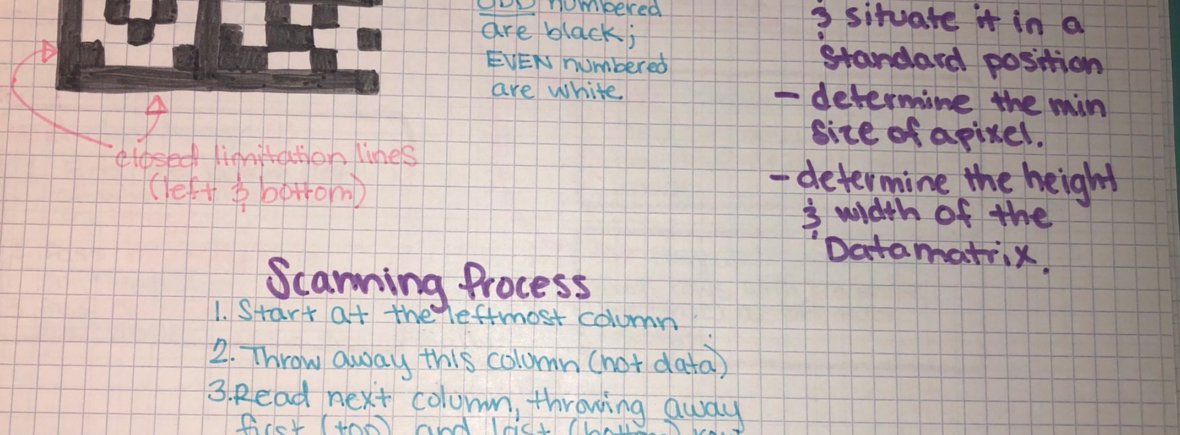 ODD numbered
are black;
EVEN numbered
are white
closed limitation lines
(left & bottom)
& situate it in a
standard position
- determine the min
size of a pixel.
- determine the height
& width of the
Datamatrix.
Scanning Process
1. Start at the leftmost column
2. Throw away this column (not data)
3. Read next column, throwing away
first (top) and last (bottom)